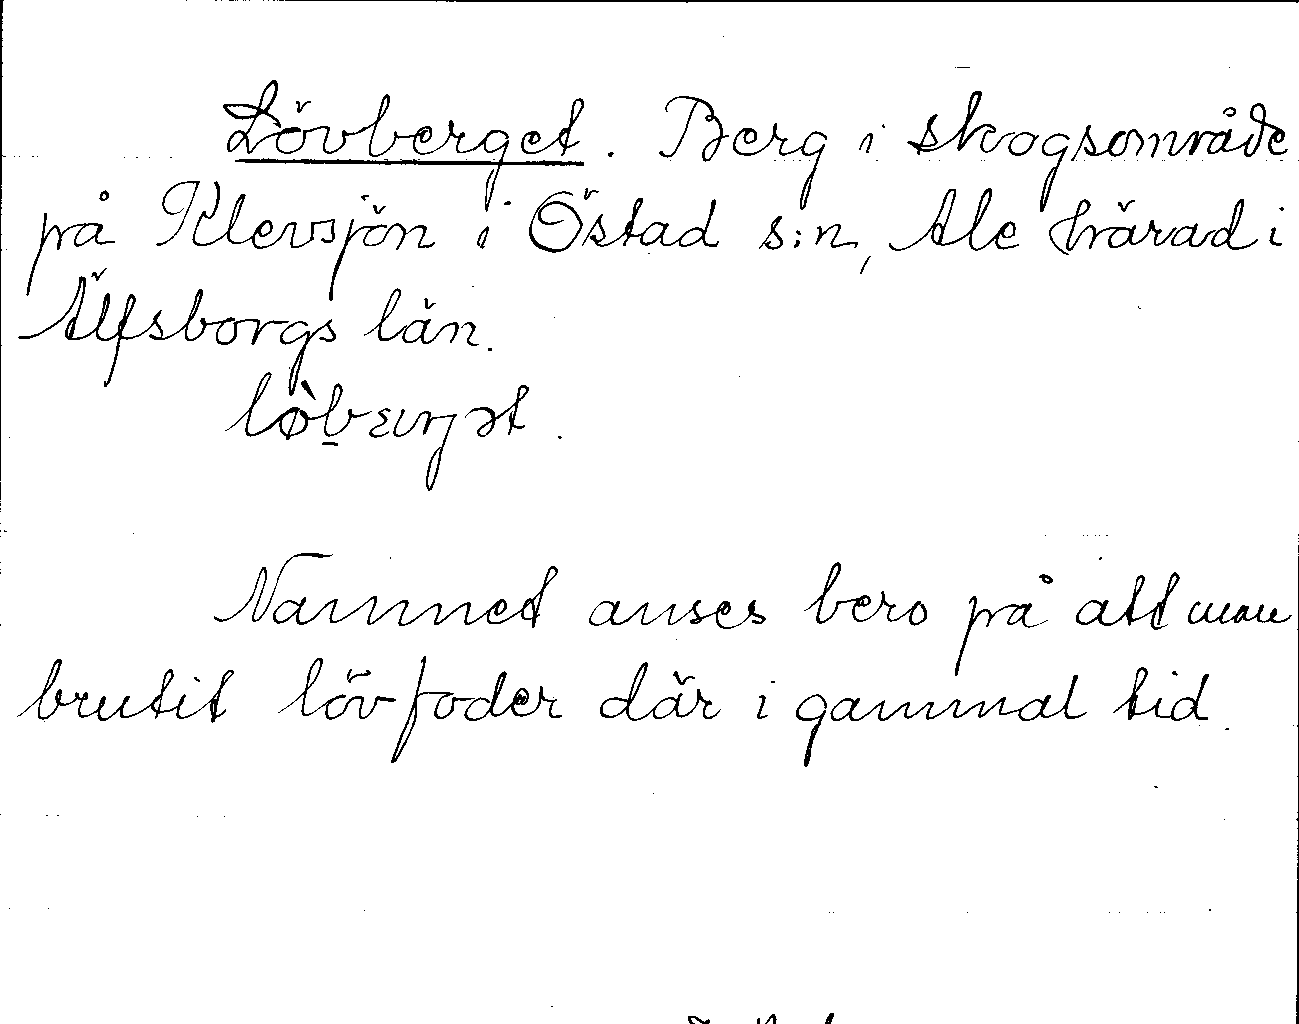 Lövberget. Berg i skogsområde
på Klevsjön i Östad s:n, Ale härad i
Älfsborgs län.
Namnet anses bero på att man
brutit lövfoder där i gammal tid.